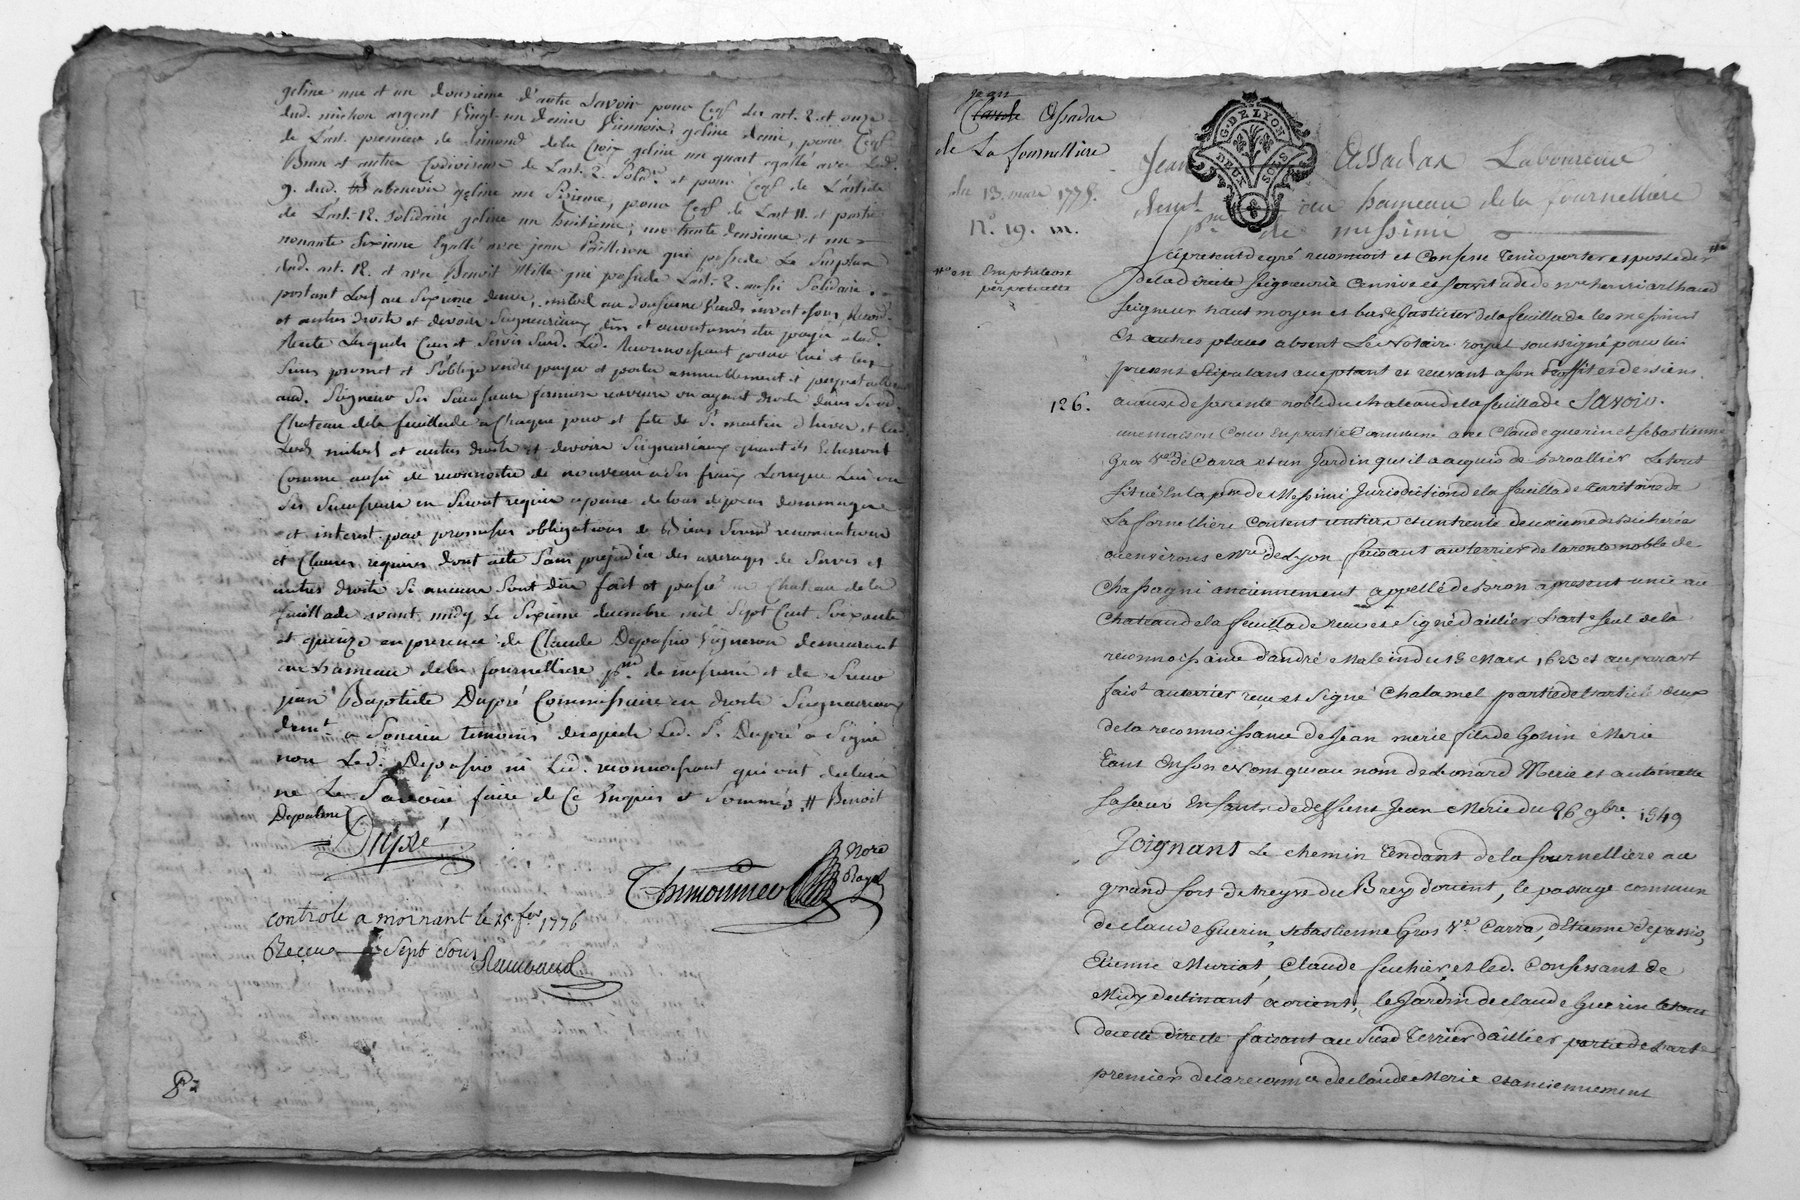 geline une et un douzieme d'autre Savoir pour Cens des art. 2. et onze
dud. michon argent Vingt un denier Viennois geline demi, pour Cens
de L'art. premier de Simond de la Croix geline un quart egallé avec Led.
Brun et autres Codiviseurs de L'art. 2. Solid. et pour Cens de L'article
9. dud. abenevis geline un Sixieme, pour Cens de L'art. 11. et partie
de L'art. 12. Solidaire geline un huitieme, un trente deuxieme et un
nonante Sixieme Egallé avec jean qui possede Le Surplus
dud. art. 12. et avec Benoit Mille qui possede L'art. 2. aussi Solidaire
portant Lods au Sixieme denier, milod au douzieme Vends investisons, Recon.
et autres droits et devoirs Seigneuriaux dûs et accoutumés etre payés alad.
Rente Lesquels Cens et Servis Susd. Led. Reconnoissant pour lui et les
Siens promet et S'oblige rendre payer et porter annuellement et perpetuelle
aud. Seigneur Ses Successeurs fermiers receveurs ou ayant droits dans Sond.
Chateau de la feuillade a Chaque jour et fete de St. martin d'hiver et les
Lods milods et autres droits et devoirs Seigneuriaux quant ils Echeront
Comme aussi de reconnoitre de nouveau a Ses fraix Lorsque Lui ou
Ses Successeurs en Seront requis a peine de tous depens dommages
et interest. par promesses obligations de Biens Soumis renonciations
et Clauses requises dont acte Sans prejudice des arrerages de Servis et
autres droits Si aucuns Sont dûs fait et passé au Chateau de la
feuillade avant midy Le Sixieme decembre mil Sept Cent Soixante
et quinze en presence de Claude Depassio Vigneron demeurant
au hameau de la fournelliere psse. de messimi et de Sieur
jean Baptiste Dupré Commissaire en droits Seigneuriaux
demt. a Soucieu temoins desquels Led. Sr. Dupré a Signé
non Led. Depassio ni Led. reconnoissant qui ont declaré
ne Le Savoir faire de Ce Enquis et Sommés # Benoit
Depalme
Dupré
Thimonnier Nore Royal
controle a mornant le 15 fer. 1776
Recue Sept Sous Raimbaud
82
jean
Claude Assadas
de La fournelliere
du 13. mars 1778.
N°. 19. m.
# en Emphiteose
perpetuelle
126.
G. DE LYON
DEUX SOLS
Jean Assadas Laboureur
demt. au hameau de la fournelliere
psse. de messimi
Le present de gré reconnoit et Confesse tenir porter et posseder #
de la directe Seigneurie Cens rive et Servitude de Mre henri arthaud
Seigneur haut moyen et bas Justicier de la feuillade les messimi
Et autres places absent Le Notaire royal soussigné pour lui
present stipulant acceptant et recevant a son proffit et des siens
a cause de sa rente noble du chateau de la feuillade Savoir.
une maison Cour En partie Commune avec Claude guerin et sebastienne
Gros Ve. de Carra et un Jardin qu'il a acquis de Le tout
situé En la psse. de Messimi Jurisdiction de la feuillade territoire de
La fornelliere Contenant un tiers et un trente deuxieme de Bicherée
ou environs mre. de Lyon faisant au terrier de la rente noble de
Chassagni anciennement appellé de Bron a present unie au
Chateau de la feuillade reçu et Signé Daillier L'art. Seul de la
reconnoissance d'andré Malein du 18 Mars 1623 et auparavant
faist. au terrier reçu et Signé Chalamel partie de L'article deux
de la reconnoissance de Jean merie fils de Gonin Merie
tant En son nom qu'au nom de Leonard Merie et antoinette
sa sœur Enfants de deffunt Jean Merie du 26 9bre. 1549
Joignant Le chemin tendant de la fournelliere au
grand fort de treyve du Brey d'orient, le passage commun
de claude guerin, sebastienne Gros Ve. Carra, d'Etienne depassio,
Etienne Muriat, Claude feuhier, et led. Confessant de
Midy declinant a orient, le Jardin de claude guerin
de cette directe faisant au Susd. terrier d'aillier partie de L'art.
premier de la reconnce de claude Merie et anciennement